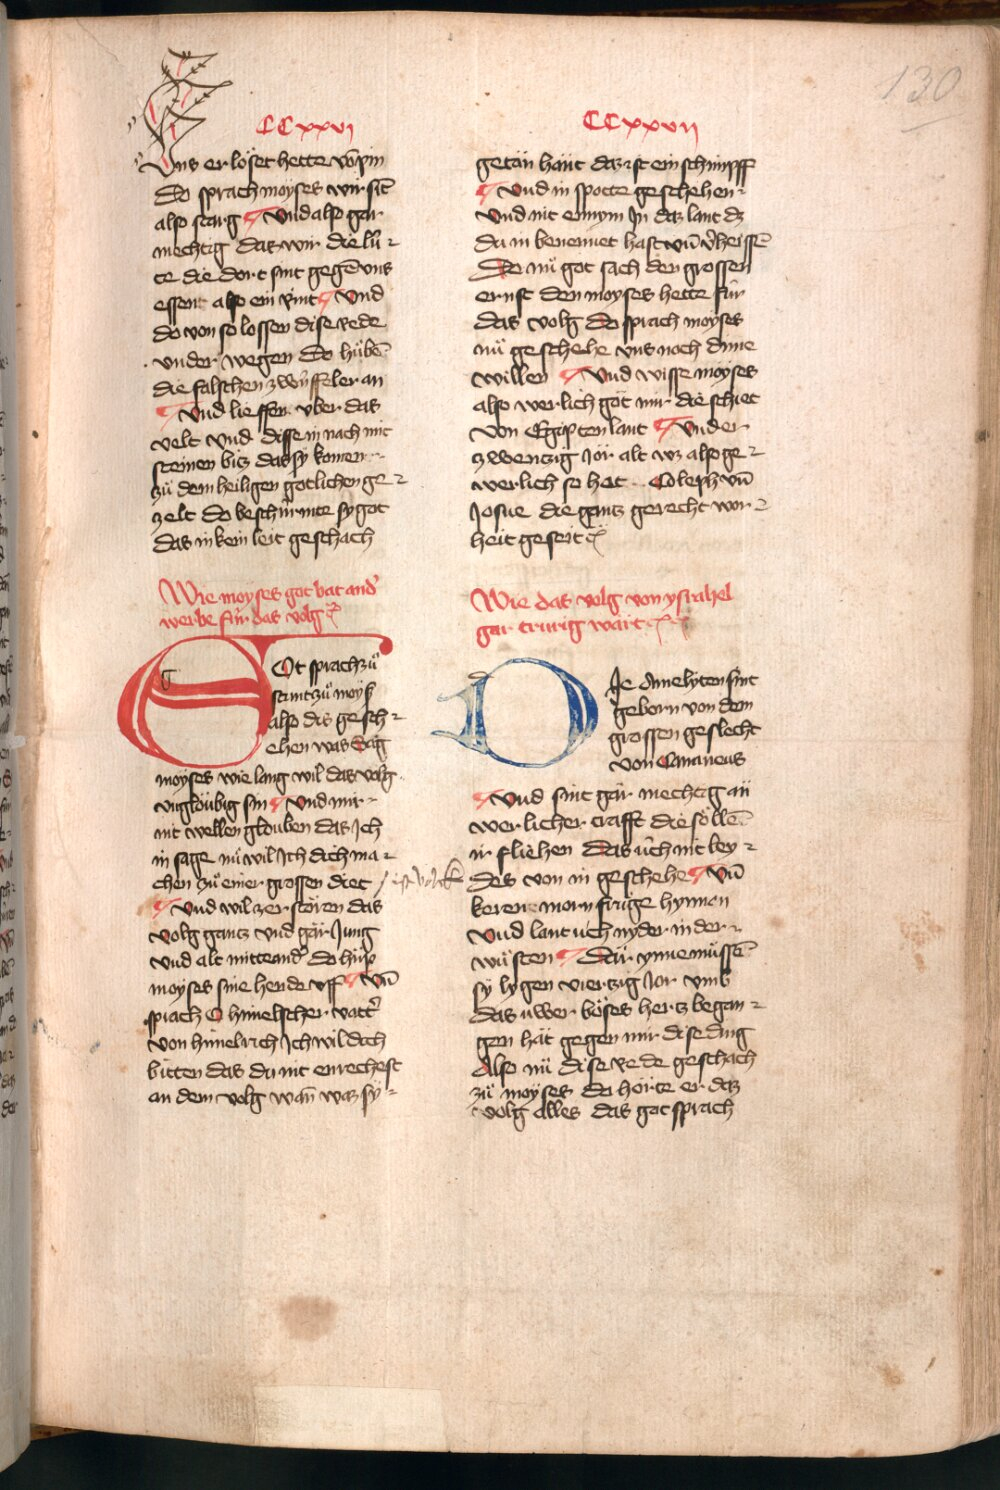 130
CCxxvi
Vns er löset hette võ pin
Do sprach moyses wir sit
also starg ¶ Vnd also gar
mechtig das wir die lü⸗
te die dort sint gegē vns
essent also ein rint ¶ Vnd
do von so lossen dise rede
vnder wegen Do hübē
die falschen zwyffeler an
¶ Vnd lieffen vber das
velt Vnd disse in nach mit
steinen bitz das sy komen
zü dem heiligen gotlichen ge⸗
zelt do beschirmte sy got
das in kein leit geschach
Wie moyses got bat and
werbe für das volg
Got sprach zü
stunt zü moyse
also dis gesch⸗
ehen was Sag
moyses wie lang wil das volg
vngloübig sin ¶ Vnd mir
nit wellen glouben das Ich
in sage nü wil Ich dich ma⸗
chen zü einer grossen diet
¶ Vnd wil zer stören das
volg gantz vnd gär Jung
vnd alt mitteand Do hüp
moyses sine hende vff ¶ Vñ
sprach O himelscher vatter
von himelrich Ich wil dich
bitten das du nit enrechest
an dem volg wañ waz sy⸗
CCxxvii
getän haüt daz ist ein schimpff
¶ Vnd in spotte geschehen
Vnd nit ennym In daz lant dz
du in benemet hast vñ v̾heissē
Do nü got sach den grossen
ernst den moyses hette für
das volg Do sprach moyses
nü geschehe vns noch dine
willen ¶ Vnd wisse moyses
also werlich göt mir die schiet
von Egipten lant ¶ Vnder
zwentzig Jör alt wz also ge⸗
werlich so hat Coleph vñ
Josue die gantz gerecht wor⸗
heit geseit
Wie das volg von ysrahel
gar trurig wart
Die Amelyten sint
geborn von dem
grossen geslecht
von Cananeus
¶ Vnd sint gär mechtig an
werlicher crafft die söllē
ir fliehen Das üch nit ley⸗
des von in geschehe ¶ Vñ
keren morn früge hynnen
Vnd lant uch nyder in der
wüsten ¶ Där ynne müssē
sy lygen viertzig Jor vmb
das uwer böses hertz began⸗
gen hät gegen mir dise ding
Also nü dise rede geschach
zü moyses do horte er daz
volg alles das got sprach